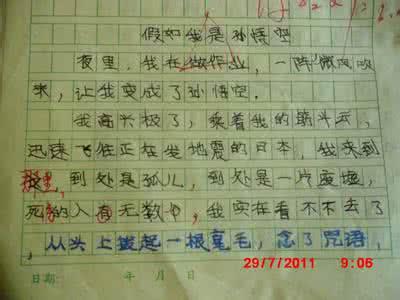 假如我是孙悟空
夜里，我在做作业，一阵微风吹
来，让我变成了孙悟空。
我高兴极了，乘着我的筋斗云，
迅速飞往正在发地震的日本，我来到
那里，到处是孤儿，到处是一片废墟，
死的人有无数，我实在看不下去了
，从头上拔起一根毫毛，念了咒语，
日期： 年 月 日
29/7/2011 9:06